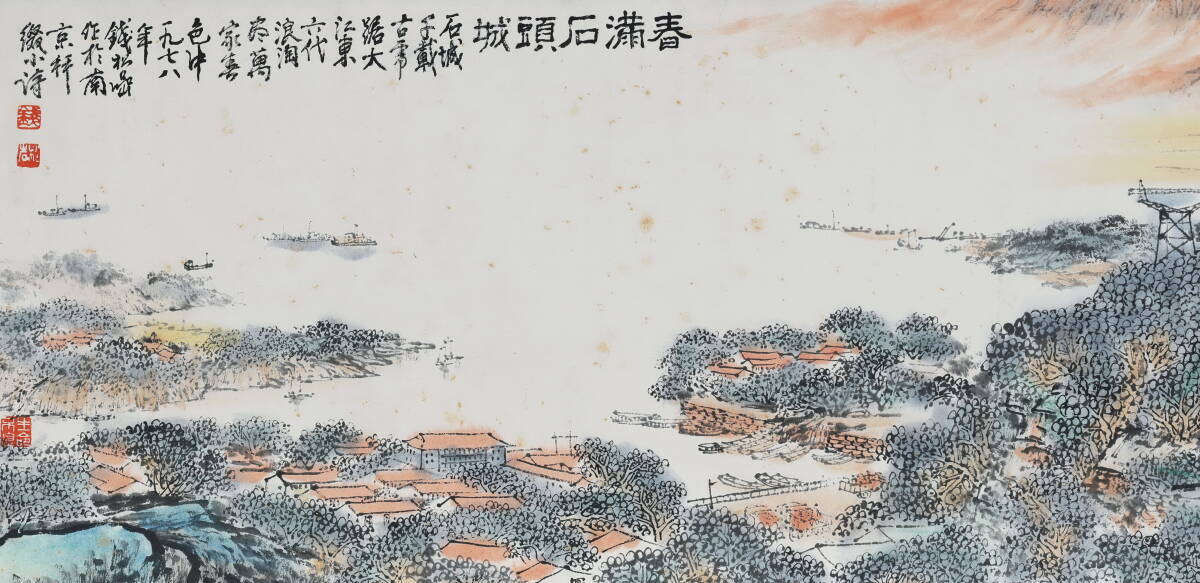 春滿石頭城
石城
千載
古虎
踞大
江東
六代
浪淘
尽萬
家春
色中
一九七八
年
錢松嵒
作於南
京并
綴小詩